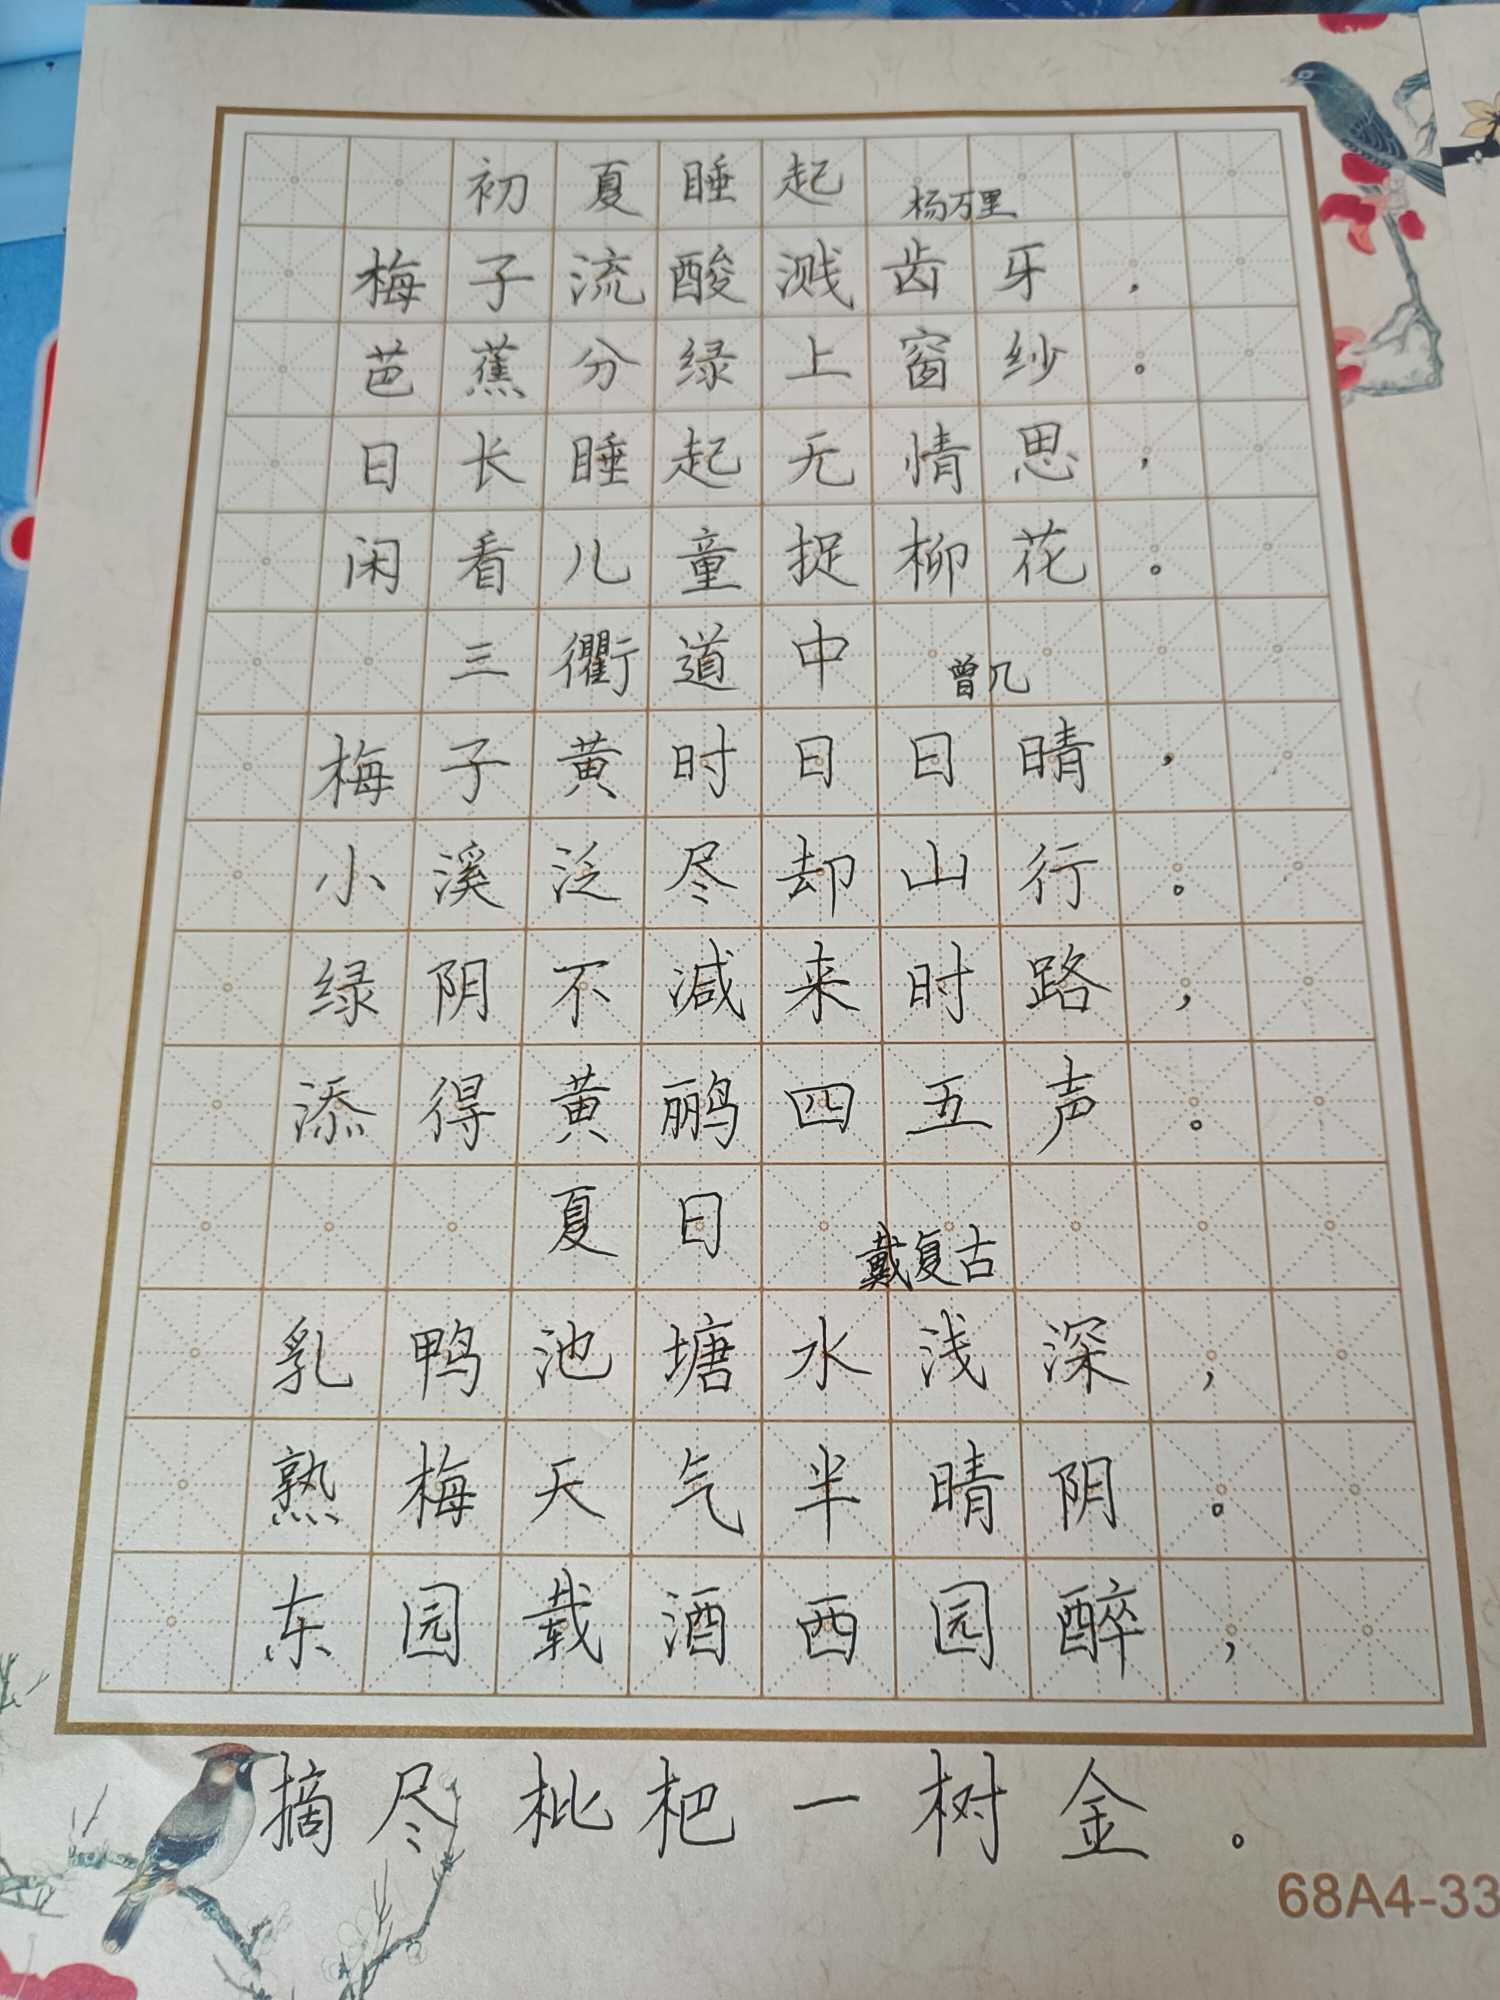 初夏睡起 杨万里
梅子流酸溅齿牙，
芭蕉分绿上窗纱。
日长睡起无情思，
闲看儿童捉柳花。
三衢道中 曾几
梅子黄时日日晴，
小溪泛尽却山行。
绿阴不减来时路，
添得黄鹂四五声。
夏日 戴复古
乳鸭池塘水浅深，
熟梅天气半晴阴。
东园载酒西园醉，
摘尽枇杷一树金。
68A4-33